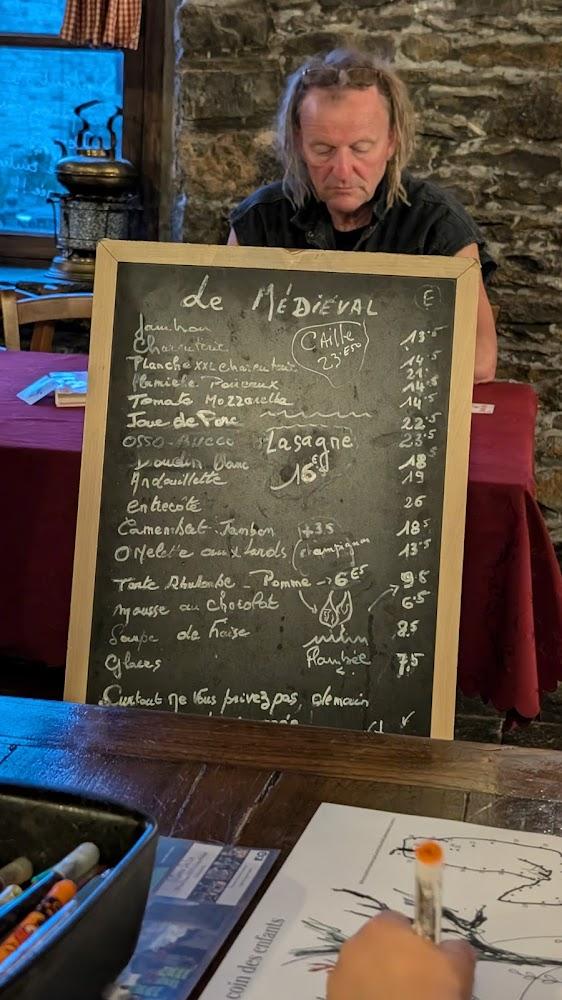 de MÉDIÉVAL E
Jambon 13.5
Charcuterie 14.5
CAille 23.E50
Planche XXL charcuterie 21.
Flamiche Poireaux 14.5
Tomate Mozzarella 14.5
Joue de Porc 22.5
OSSO-BUCCO 23.5
Lasagne 16€
Boudin blanc 18
Andouillette 19
Entrecôte 26
Camembert-Jambon +3.5 18.5
Omelette aux lards champignons 13.5
Tarte Rhubarbe - Pomme → 6E5 9.5
mousse au chocolat 6.5
Soupe de fraise 8.5
Glaces Flambée 7.5
Surtout ne vous privez pas, demain
coin des enfants